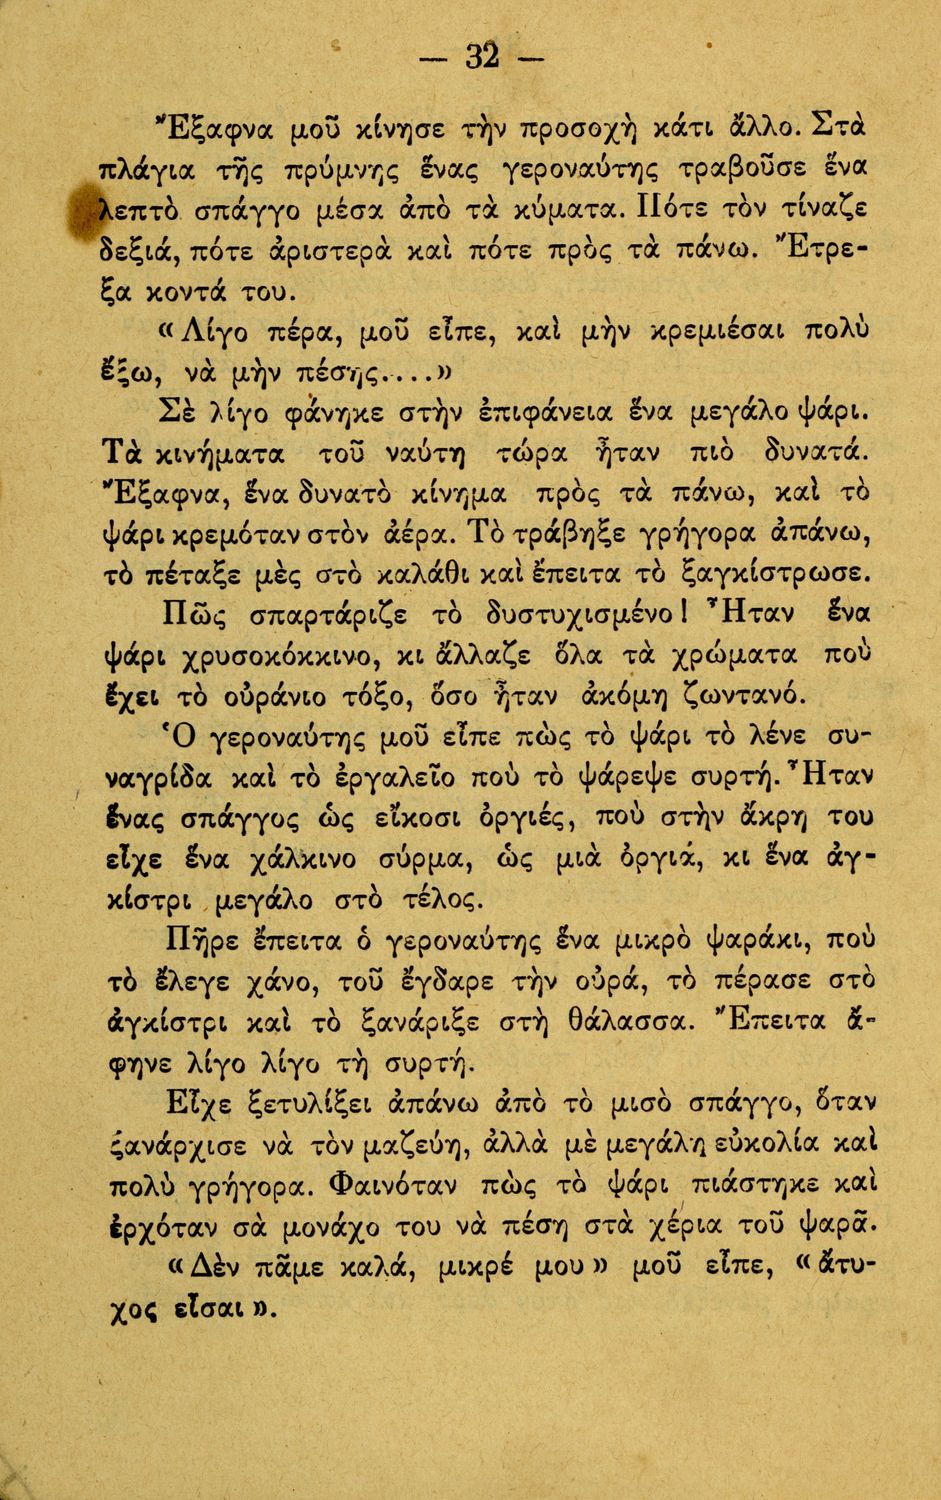 — 32 —
Ἔξαφνα μοῦ κίνησε τὴν προσοχὴ κάτι ἄλλο. Στὰ
πλάγια τῆς πρύμνης ἕνας γεροναύτης τραβοῦσε ἕνα
λεπτὸ σπάγγο μέσα ἀπὸ τὰ κύματα. Πότε τὸν τίναζε
δεξιά, πότε ἀριστερὰ καὶ πότε πρὸς τὰ πάνω. Ἔτρε-
ξα κοντά του.
«Λίγο πέρα, μοῦ εἶπε, καὶ μὴν κρεμιέσαι πολὺ
ἔξω, νὰ μὴν πέσῃς....»
Σὲ λίγο φάνηκε στὴν ἐπιφάνεια ἕνα μεγάλο ψάρι.
Τὰ κινήματα τοῦ ναύτη τώρα ἦταν πιὸ δυνατά.
Ἔξαφνα, ἕνα δυνατὸ κίνημα πρὸς τὰ πάνω, καὶ τὸ
ψάρι κρεμόταν στὸν ἀέρα. Τὸ τράβηξε γρήγορα ἀπάνω,
τὸ πέταξε μὲς στὸ καλάθι καὶ ἔπειτα τὸ ξαγκίστρωσε.
Πῶς σπαρτάριζε τὸ δυστυχισμένο! Ἦταν ἕνα
ψάρι χρυσοκόκκινο, κι ἄλλαζε ὅλα τὰ χρώματα ποὺ
ἔχει τὸ οὐράνιο τόξο, ὅσο ἦταν ἀκόμη ζωντανό.
Ὁ γεροναύτης μοῦ εἶπε πὼς τὸ ψάρι τὸ λένε συ-
ναγρίδα καὶ τὸ ἐργαλεῖο ποὺ τὸ ψάρεψε συρτή. Ἦταν
ἕνας σπάγγος ὡς εἴκοσι ὀργιές, ποὺ στὴν ἄκρη του
εἶχε ἕνα χάλκινο σύρμα, ὡς μιὰ ὀργιά, κι ἕνα ἀγ-
κίστρι μεγάλο στὸ τέλος.
Πῆρε ἔπειτα ὁ γεροναύτης ἕνα μικρὸ ψαράκι, ποὺ
τὸ ἔλεγε χάνο, τοῦ ἔγδαρε τὴν οὐρά, τὸ πέρασε στὸ
ἀγκίστρι καὶ τὸ ξανάριξε στὴ θάλασσα. Ἔπειτα ἄ-
φηνε λίγο λίγο τὴ συρτή.
Εἶχε ξετυλίξει ἀπάνω ἀπὸ τὸ μισὸ σπάγγο, ὅταν
ξανάρχισε νὰ τὸν μαζεύη, ἀλλὰ μὲ μεγάλη εὐκολία καὶ
πολὺ γρήγορα. Φαινόταν πὼς τὸ ψάρι πιάστηκε καὶ
ἐρχόταν σὰ μονάχο του νὰ πέση στὰ χέρια τοῦ ψαρᾶ.
«Δὲν πᾶμε καλά, μικρέ μου» μοῦ εἶπε, «ἄτυ-
χος εἶσαι».